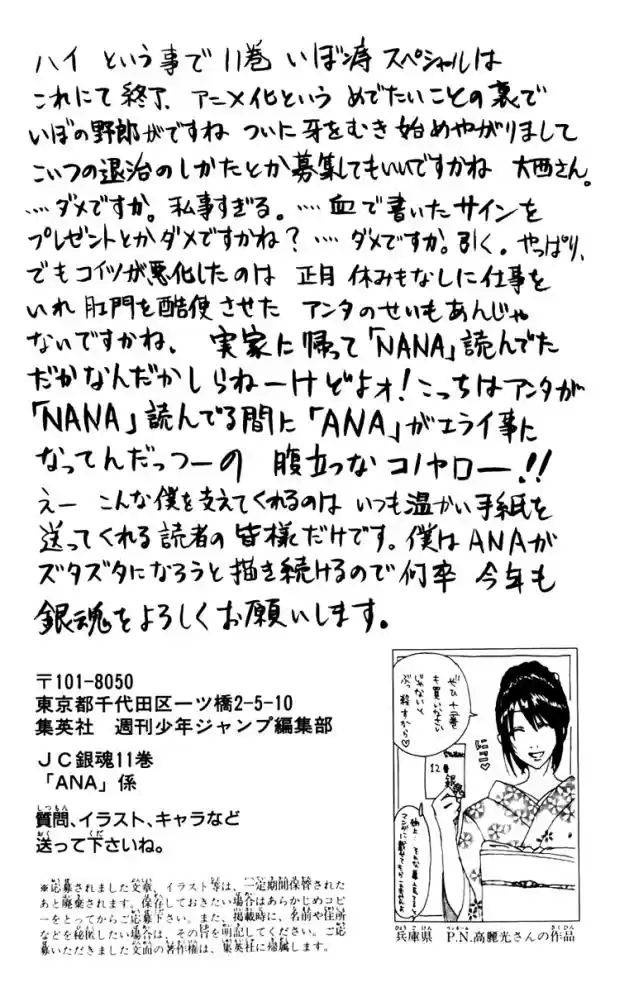 ハイ という事で 11巻 いぼ痔 スペシャルは
これにて終了、アニメ化という めでたいことの裏で
いぼの野郎がですね ついに牙をむき始めやがりまして
こいつの退治のしかたとか募集してもいいですかね 大西さん。
‥‥ダメですか。私事すぎる。‥‥血で書いたサインを
プレゼントとかダメですかね？‥‥ダメですか。引く。やっぱり、
でもコイツが悪化したのは 正月休みもなしに仕事を
いれ 肛門を酷使させた アンタのせいもあんじゃ
ないですかね、実家に帰って「NANA」読んでた
だかなんだかしらねーけどよォ！こっちはアンタが
「NANA」読んでる間に「ANA」がエライ事に
なってんだっつーの 腹立つな コノヤロー!!
えー こんな僕を支えてくれるのは いつも温かい手紙を
送ってくれる読者の皆様だけです。僕はANAが
ズタズタになろうと描き続けるので何卒 今年も
銀魂をよろしくお願いします。
〒101-8050
東京都千代田区一ツ橋2-5-10
集英社 週刊少年ジャンプ編集部
ＪＣ銀魂11巻
「ANA」係
質問、イラスト、キャラなど
送って下さいね。
※応募されました文章、イラスト等は、一定期間保管された
あと廃棄されます。保存しておきたい場合はあらかじめコピ
ーをとってからご応募下さい。また、掲載時に、名前や住所
などを秘匿したい場合は、その旨を明記してください。ご応
募いただきました文面の著作権は、集英社に帰属します。
ぜひ十二巻も
お買いなさい
じゃないと
ぶっ殺すから♡
12巻
銀魂
兵庫県 P.N.高麗光さんの作品